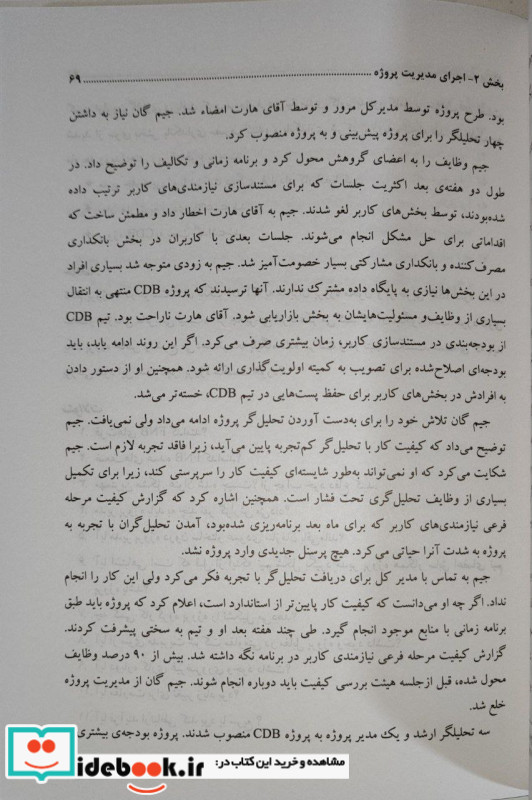 بخش ۲- اجرای مدیریت پروژه ........................................ ۶۹
بود. طرح پروژه توسط مدیرکل مرور و توسط آقای هارت امضاء شد. جیم گان نیاز به داشتن
چهار تحلیلگر را برای پروژه پیش‌بینی و به پروژه منصوب کرد.
جیم وظایف را به اعضای گروهش محول کرد و برنامه زمانی و تکالیف را توضیح داد. در
طول دو هفته‌ی بعد اکثریت جلسات که برای مستندسازی نیازمندی‌های کاربر ترتیب داده
شده‌بودند، توسط بخش‌های کاربر لغو شدند. جیم به آقای هارت اخطار داد و مطمئن ساخت که
اقداماتی برای حل مشکل انجام می‌شوند. جلسات بعدی با کاربران در بخش بانکداری
مصرف‌کننده و بانکداری مشارکتی بسیار خصومت‌آمیز شد. جیم به زودی متوجه شد بسیاری افراد
در این بخش‌ها نیازی به پایگاه داده مشترک ندارند. آنها ترسیدند که پروژه CDB منتهی به انتقال
بسیاری از وظایف‌و مسئولیت‌هایشان به بخش بازاریابی شود. آقای هارت ناراحت بود. تیم CDB
از بودجه‌بندی در مستندسازی کاربر، زمان بیشتری صرف می‌کرد. اگر این روند ادامه یابد، باید
بودجه‌ای اصلاح‌شده برای تصویب به کمیته اولویت‌گذاری ارائه شود. همچنین او از دستور دادن
به افرادش در بخش‌های کاربر برای حفظ پست‌هایی در تیم CDB، خسته‌تر می‌شد.
جیم گان تلاش خود را برای به‌دست آوردن تحلیل‌گر پروژه ادامه می‌داد ولی نمی‌یافت. جیم
توضیح می‌داد که کیفیت کار با تحلیل‌گر کم‌تجربه پایین می‌آید، زیرا فاقد تجربه لازم است. جیم
شکایت می‌کرد که او نمی‌تواند به‌طور شایسته‌ای کیفیت کار را سرپرستی کند، زیرا برای تکمیل
بسیاری از وظایف تحلیل‌گری تحت فشار است. همچنین اشاره کرد که گزارش کیفیت مرحله
فرعی نیازمندی‌های کاربر که برای ماه بعد برنامه‌ریزی شده‌بود، آمدن تحلیل‌گران با تجربه به
پروژه به شدت آنرا حیاتی می‌کرد. هیچ پرسنل جدیدی وارد پروژه نشد.
جیم به تماس با مدیر کل برای دریافت تحلیل‌گر با تجربه فکر می‌کرد ولی این کار را انجام
نداد. اگر چه او می‌دانست که کیفیت کار پایین‌تر از استاندارد است، اعلام کرد که پروژه باید طبق
برنامه زمانی با منابع موجود انجام گیرد. طی چند هفته بعد او و تیم به سختی پیشرفت کردند.
گزارش کیفیت مرحله فرعی نیازمندی کاربر در برنامه نگه داشته شد. بیش از ۹۰ درصد وظایف
محول شده، قبل ازجلسه هیئت بررسی کیفیت باید دوباره انجام شوند. جیم گان از مدیریت پروژه
خلع شد.
سه تحلیلگر ارشد و یک مدیر پروژه به پروژه CDB منصوب شدند. پروژه بودجه‌ی بیشتری
مشاهده و خرید این کتاب در:
idebook.ir